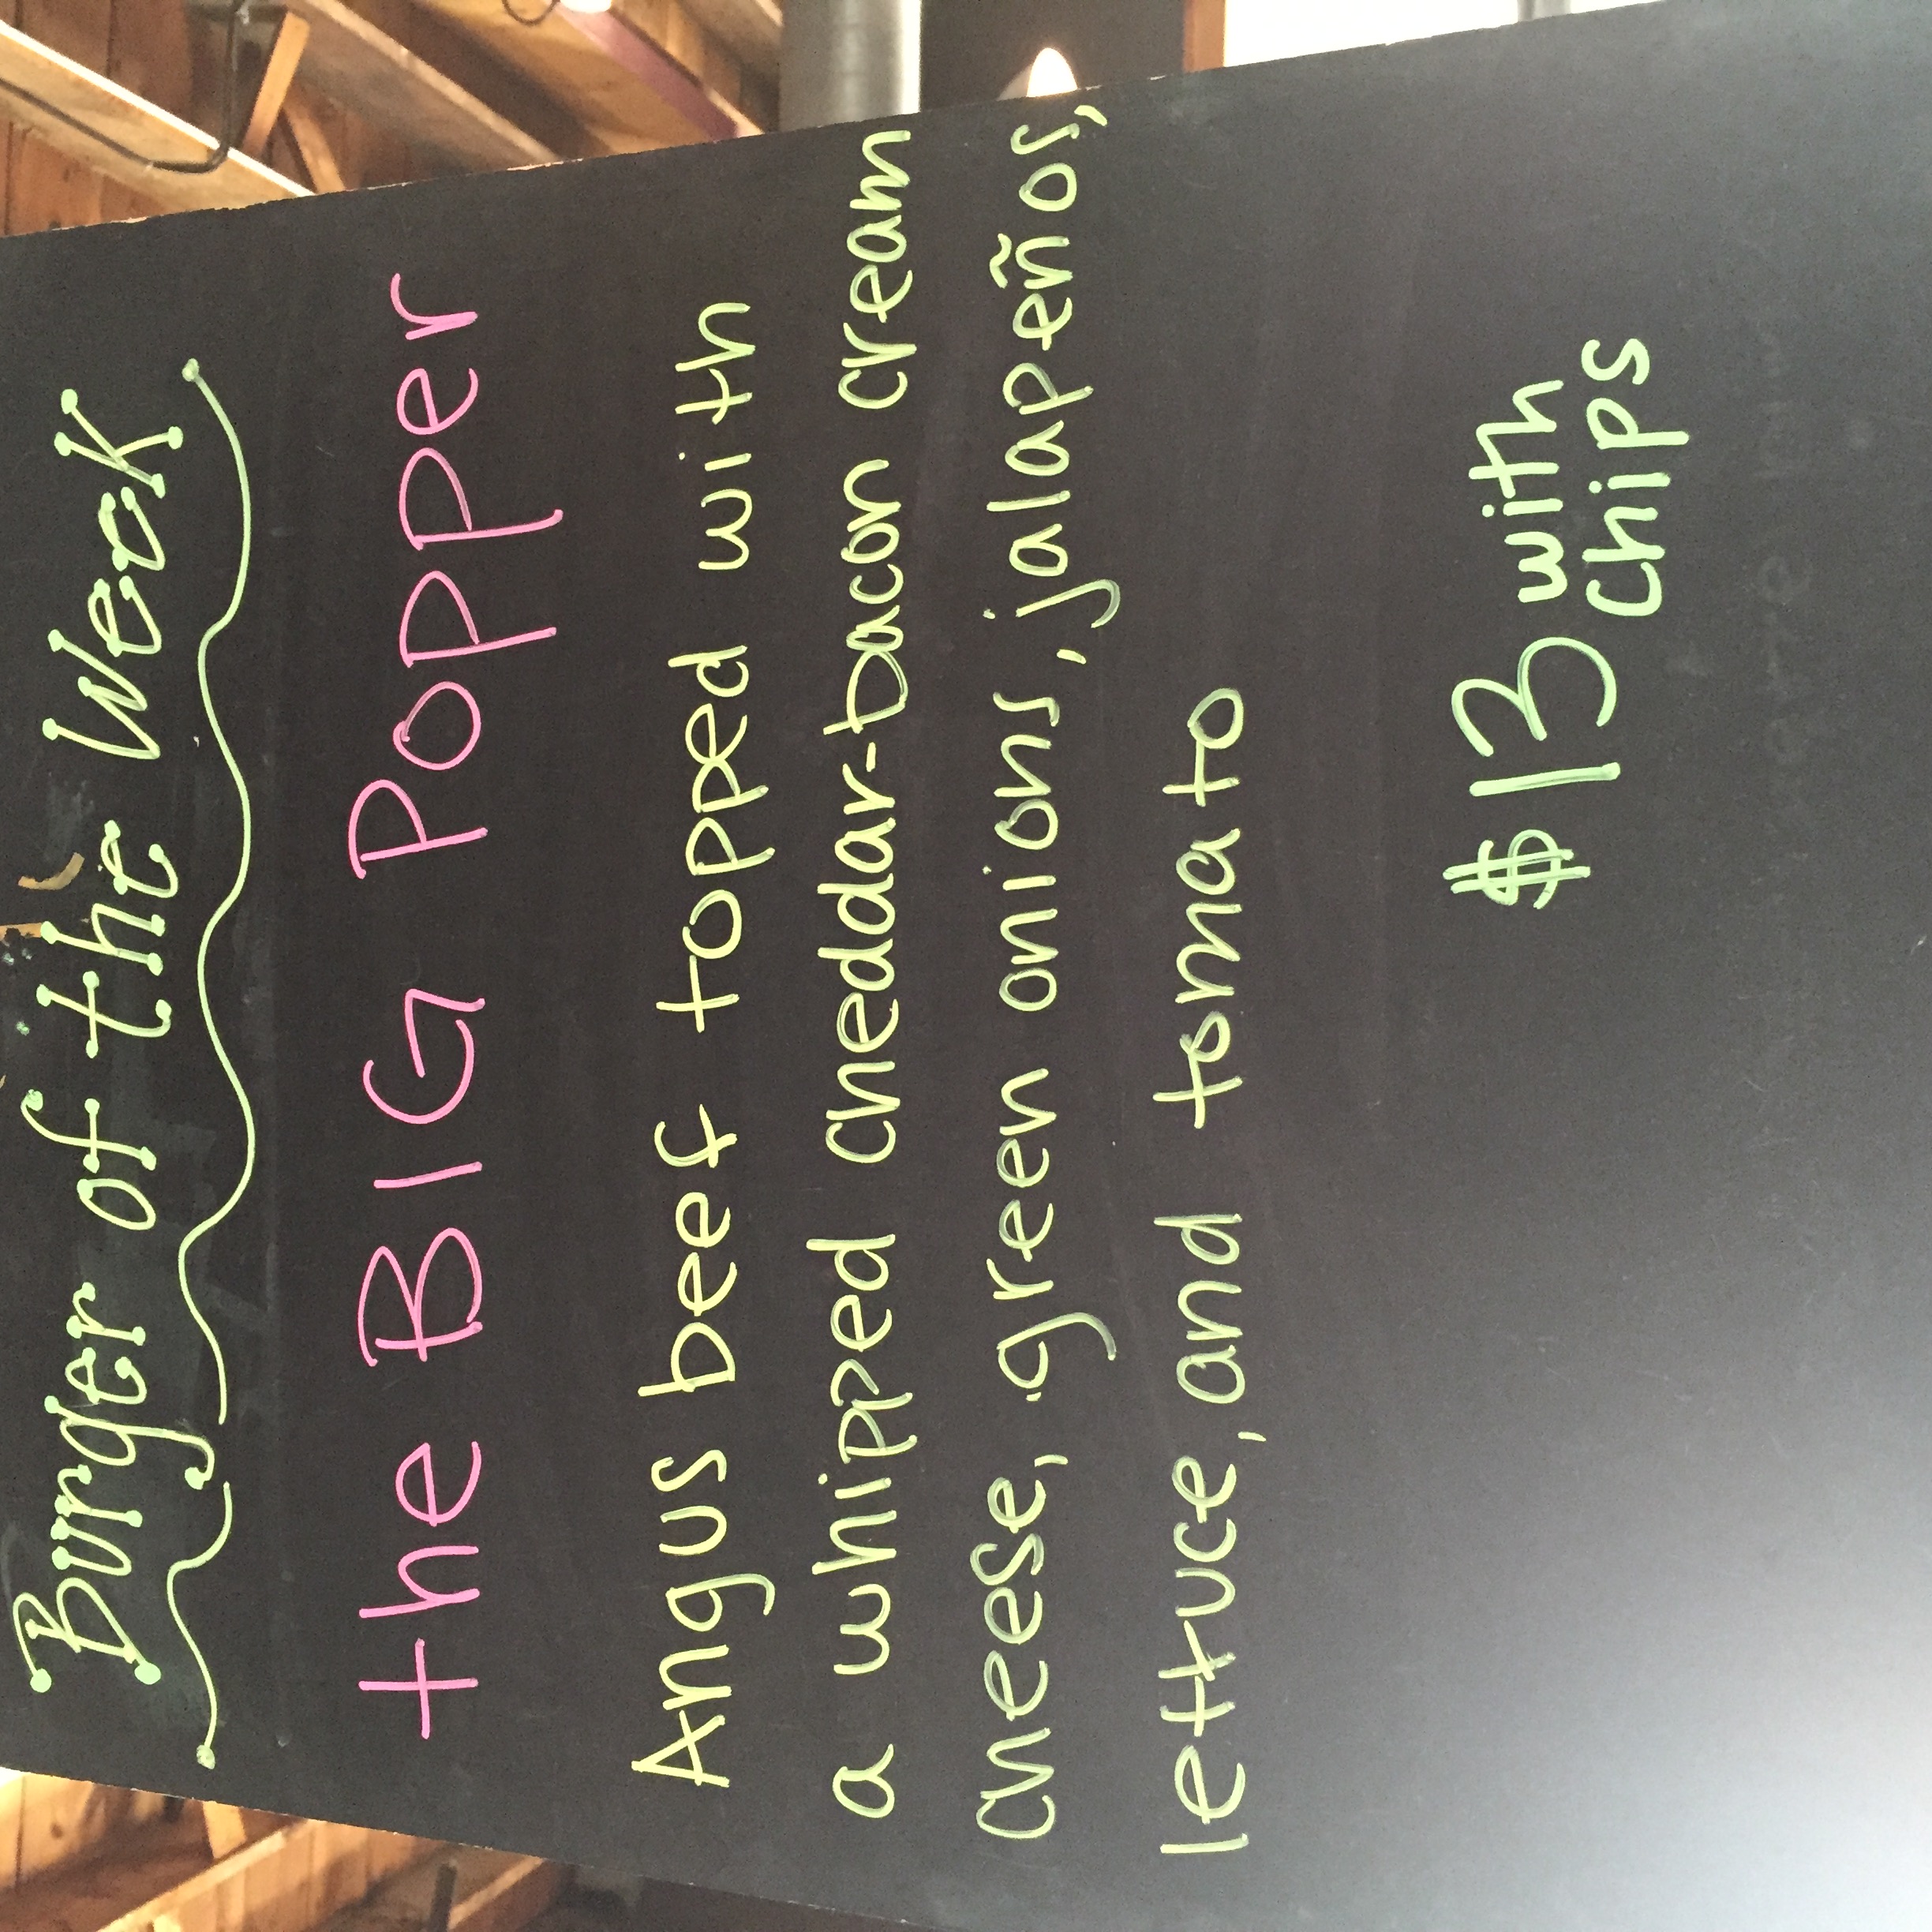 Burger of the Week
the BIG Popper
Angus beef topped with
a whipped cheddar-bacon cream
cheese, green onions, jalapeños,
lettuce, and tomato
$13 with
chips